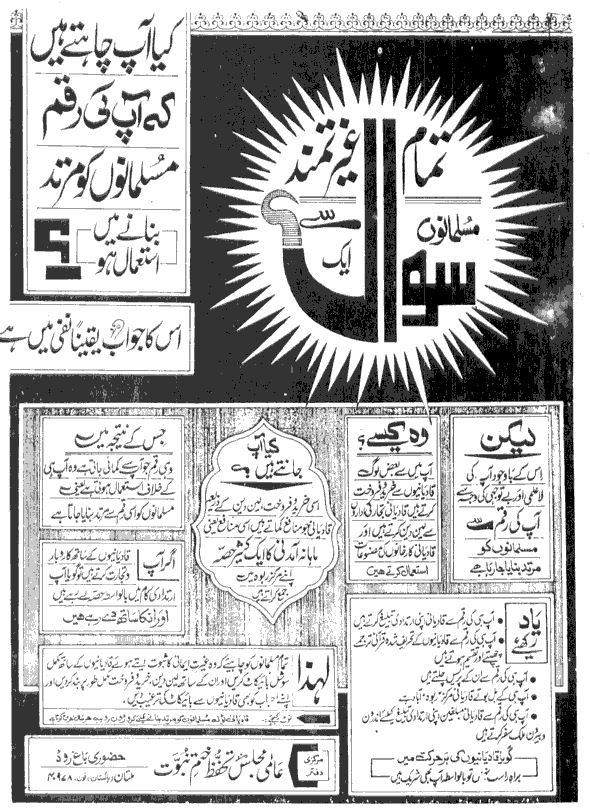 تمام غیرتمند
مسلمانوں سے
ایک
سوال
کیا آپ چاہتے ہیں
کہ آپ کی رقم
مسلمانوں کو مرتد
بنانے میں
استعمال ہو
؟
اس کا جواب یقیناً نفی میں ہے
لیکن
اس کے باوجود آپ کی
لاعلمی اور بے توجہی کی وجہ سے
آپ کی رقم سے
مسلمانوں کو
مرتد بنایا جا رہا ہے
وہ کیسے؟
آپ میں سے بعض لوگ
قادیانیوں سے خرید و فروخت
کرتے ہیں قادیانی تجارتی اداروں
سے لین دین کرتے ہیں اور
قادیانی کارخانوں کی مصنوعات
استعمال کرتے ہیں
کیا آپ
جانتے ہیں
اسی خرید و فروخت، لین دین کے ذریعہ
قادیانی جو منافع کماتے ہیں اسی منافع یعنی
ماہانہ آمدنی کا ایک کثیر حصہ
اپنے مرکز ربوہ میں
جمع کراتے ہیں
جس کے نتیجہ میں
وہی رقم جو آپ سے کمائی جاتی ہے وہ آپ ہی
کے خلاف استعمال ہوتی ہے یعنی
مسلمانوں کو اسی رقم سے مرتد بنایا جاتا ہے
اگر آپ
قادیانیوں کے ساتھ کاروبار
و تجارت کرتے ہیں تو گویا آپ
ارتدادی کام میں بالواسطہ حصہ لے رہے ہیں
اور ان کا ساتھ دے رہے ہیں
یاد رکھیے
آپ ہی کی رقم سے قادیانی اپنی ارتدادی تبلیغ کرتے ہیں
آپ ہی کی رقم سے قادیانیوں کے تحریف شدہ قرآنی ترجمے
چھپتے اور تقسیم ہوتے ہیں
آپ ہی کی رقم سے ان کے پریس چلتے ہیں
آپ ہی کے بل بوتے قادیانی مرکز "ربوہ" آباد ہے
آپ ہی کی رقم سے قادیانی مبلغین اپنی ارتدادی تبلیغ کیلئے اندرون
و بیرون ملک سفر کرتے ہیں
گویا قادیانیوں کی ہر حرکت میں
براہ راست نہیں تو بالواسطہ آپ بھی شریک ہیں
لہٰذا
تمام مسلمانوں کو چاہیے کہ وہ غیرت ایمانی کا ثبوت دیتے ہوئے قادیانیوں کے ساتھ مکمل
سوشل بائیکاٹ کریں اور ان کے ساتھ لین دین، خرید و فروخت مکمل طور پر بند کر دیں اور
اپنے احباب کو بھی قادیانیوں سے بائیکاٹ کی ترغیب دیں
نوٹ کیجئے
مرکزی دفتر
عالمی مجلس تحفظ ختم نبوت
حضوری باغ روڈ
ملتان پاکستان، فون: ۴۰۹۷۸